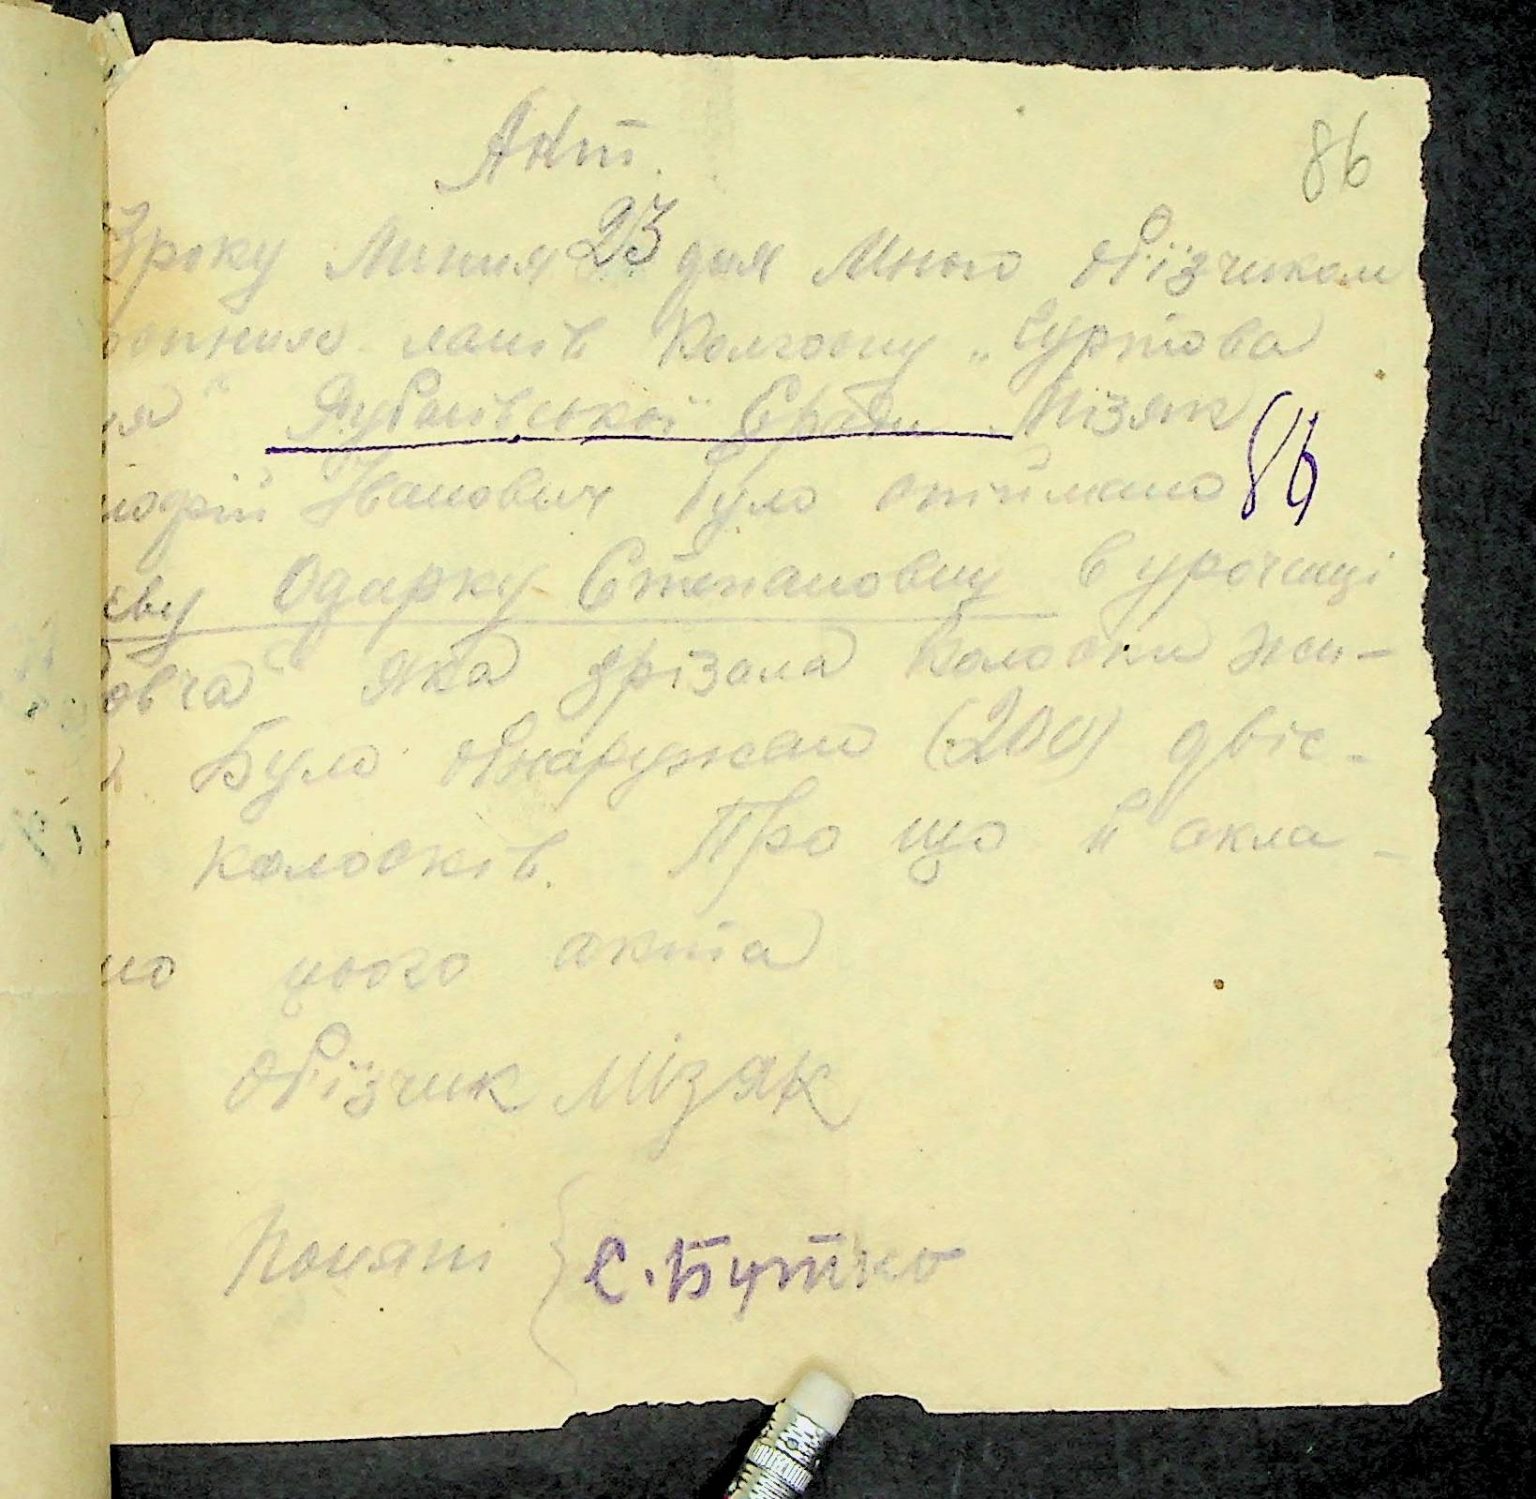 Акт
86
3 року Липня 23 дня Мною обїзчиком
ланів Колгоспу „Гуртова
ця" Дубаївської с/ради Мізяк
Іванович було спіймано
86
єву Одарку Степановну в урочищі
овча" яка зрізала колоски жи-
Було обнаружено (200) двіс-
колосків. Про що й скла-
но цього акта
Обїзчик Мізяк
Поняті { С. Бутко